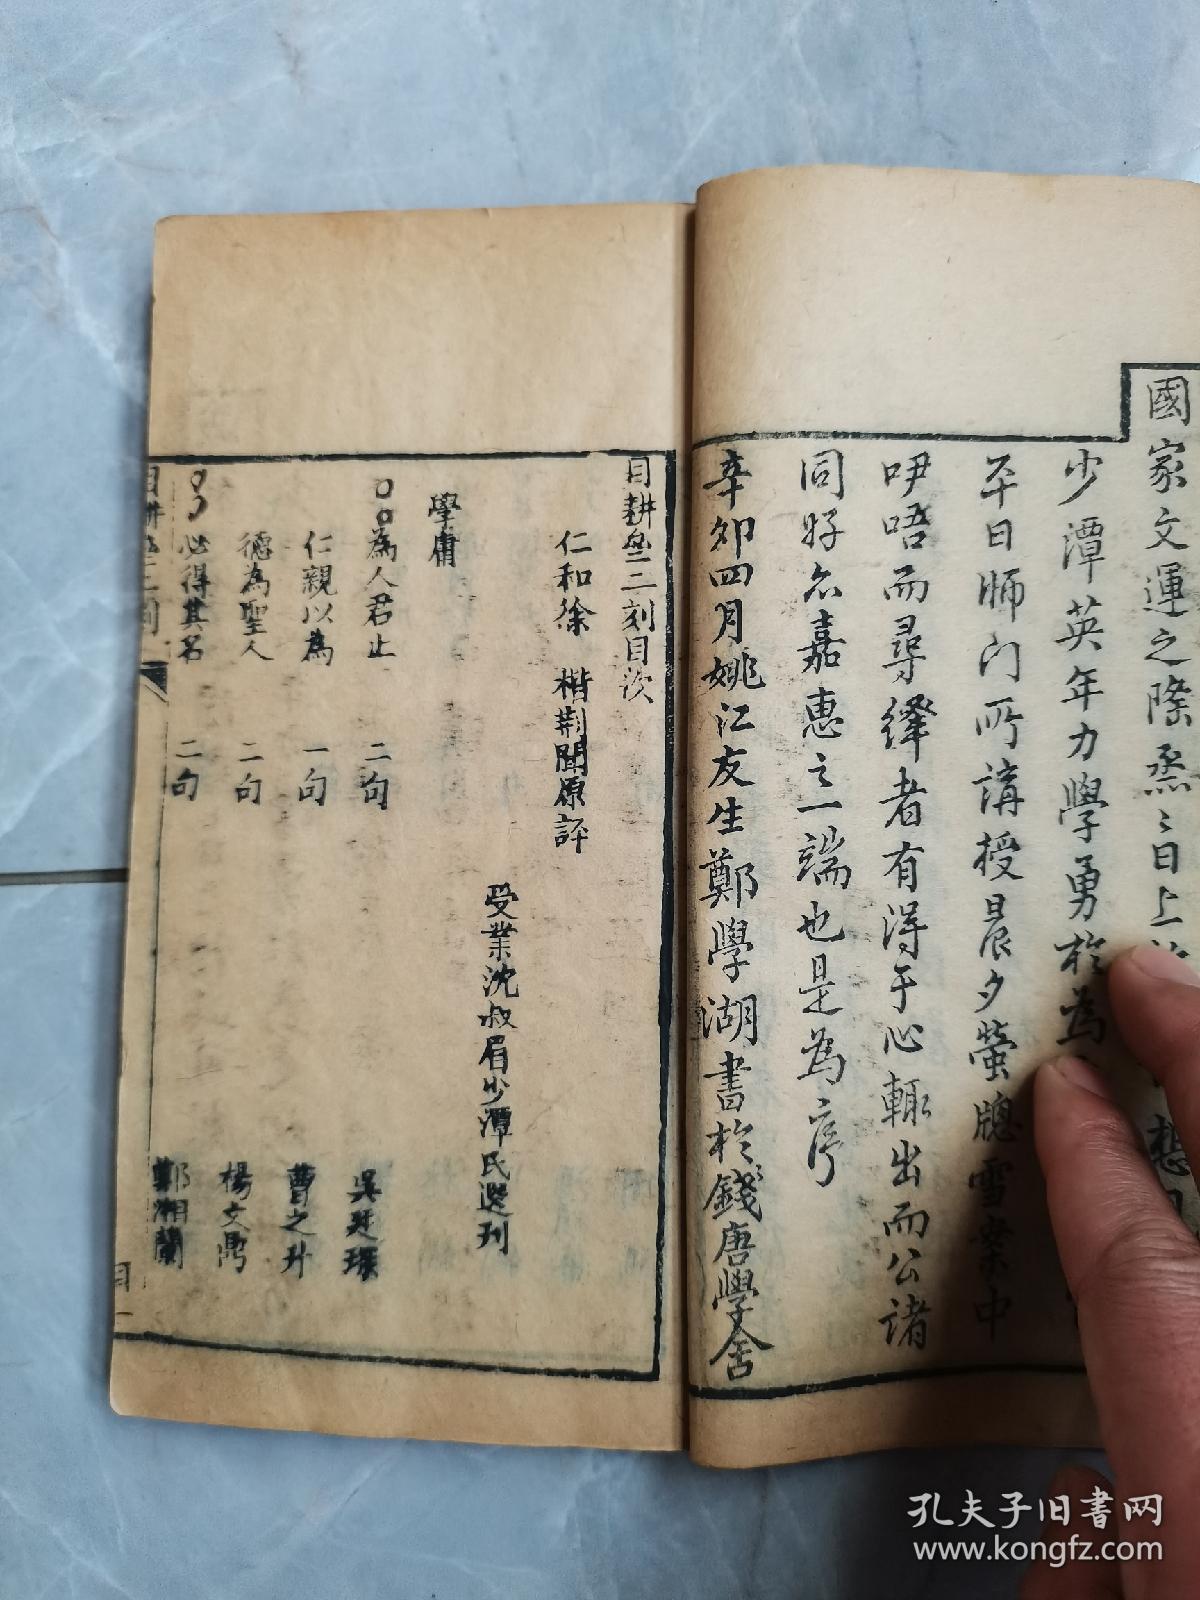 國家文運之際烝〻日上
少潭英年力學勇於為
平日師门所講授晨夕螢牕雪案中
咿唔而尋繹者有得于心輒出而公諸
同好亦嘉惠之一端也是為序
辛卯四月姚江友生鄭學湖書於錢唐學舍
目耕齋二刻目次
仁和徐 楷荆聞原評
受業沈叔眉少潭氏選刊
學庸
為人君止 二句 吳珽璨
仁親以為 一句 曹之升
德為聖人 二句 楊文鼎
必得其名 二句 鄭湘蘭
目耕齋二刻
目一
孔夫子旧书网
www.kongfz.com